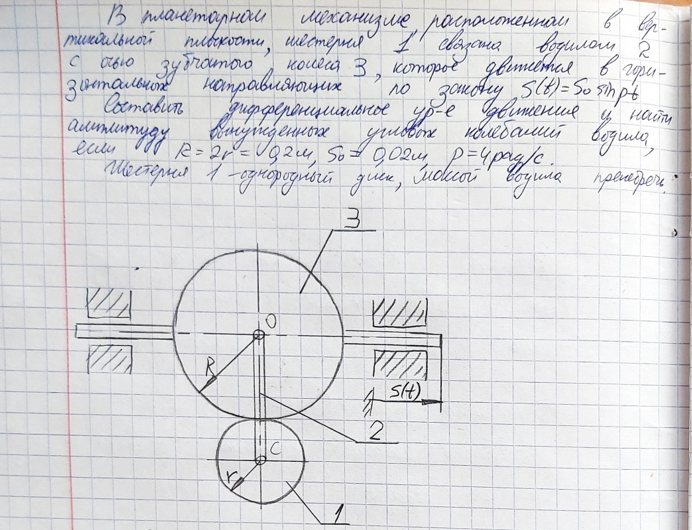 В планетарном механизме, расположенном в вер-
тикальной плоскости, шестерня 1 связана водилом 2
с осью зубчатого колеса 3, которое движется в гори-
зонтальных направляющих по закону S(t)=S₀ sin pt
Составить дифференциальное ур-е движения и найти
амплитуду вынужденных угловых колебаний водила,
если R=2r=0,2м, S₀=0,02м, p=4рад/с.
Шестерня 1 -однородный диск, массой водила пренебречь.
3
O
R
S(t)
2
C
r
1